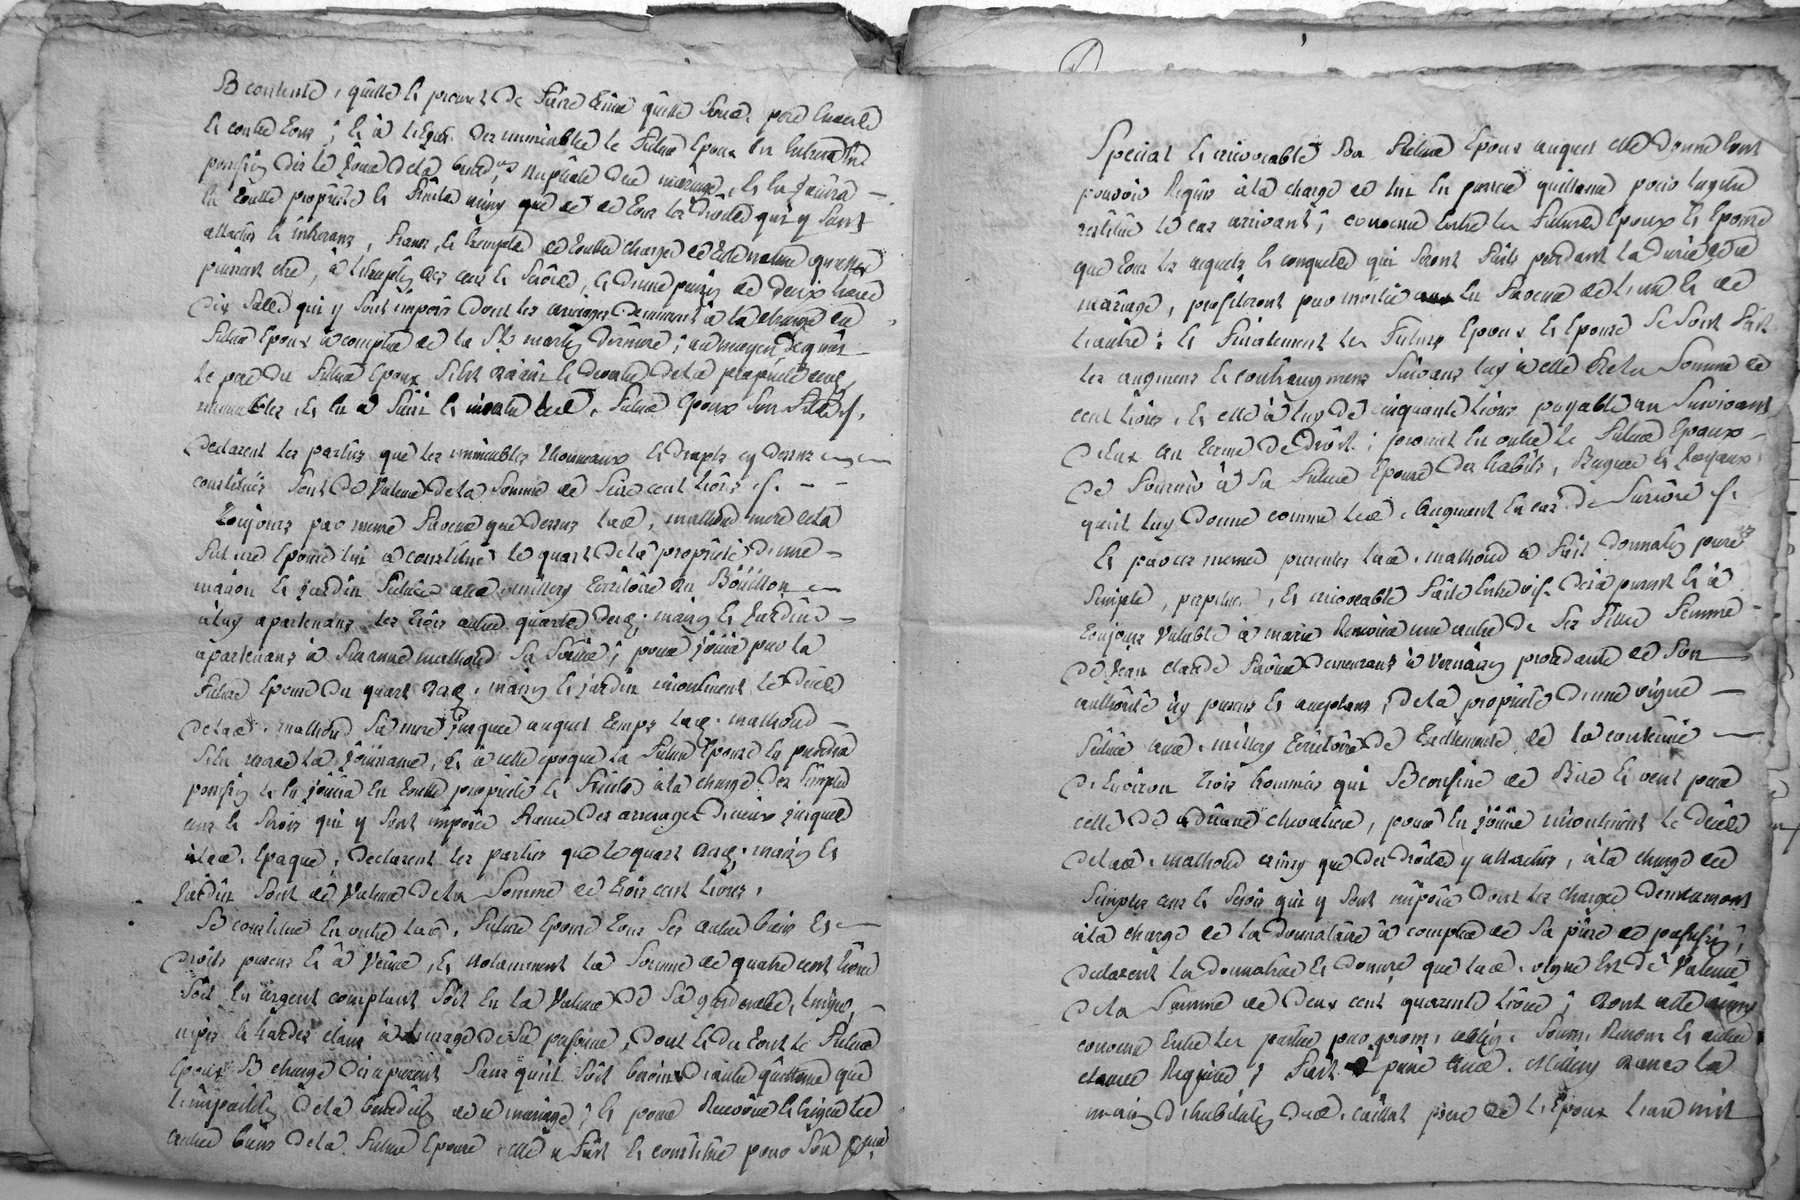 Se contente, quitte et promet de faire tenir quitte envers
et contre tous ; et à l'egard des immeubles le futur Epoux en entrera en
possession dès le jour de la bened.on nuptiale du mariage, et en jouira
en toutte propriété et fruits ainsy que de tous les droits qui y sont
attachés et inherans, francs et exempts de toutte charge de telle nature qu'elles
puissent etre, à l'exception des cens et servis, et d'une pension de deux livres
dix sols qui y sont imposés dont les arrerages demeurent à la charge du
futur Epoux à compter de la St martin derniere ; au moyen de quoy
le pere du futur Epoux s'est demis et devetu de la propriété des
immeubles, et en a saisi et investi led. futur Epoux son fils.
Declarent les parties que les immeubles tonneaux et draps cy dessus
constitués sont de valeur de la somme de seize cent livres
Toujours par meme faveur que dessus lad. mathoud mere de la
future Epouse lui a constitué le quart de la propriété d'une
maison et jardin située aud. millery territoire du Bouillon
à luy apartenans, les trois autres quarts desd. maison et jardin
apartenans à Suzanne mathoud sa soeur ; pour jouir par la
future Epouse du quart desd. maison et jardin incontinent le décès
de lad. mathoud sa mere jusques auquel temps lad. mathoud
s'en reserve la jouissance, et à cette epoque la future Epouse en prendra
possession et en jouira en toutte propriété et fruits à la charge des simples
cens et servis qui y sont imposés francs des arrerages d'iceux jusques
à lad. Epoque ; declarent les parties que le quart desd. maison et
jardin sont de valeur de la somme de trois cent livres.
Se constitue en outre lad. future Epouse tous ses autres biens et
droits presens et à venir, et notamment la somme de quatre cent livres
soit en argent comptant soit en la valeur de sa garderobe, linges,
nipes et hardes etans à l'usage de sa personne, dont et du tout le futur
Epoux se charge dès à present sans qu'il soit besoin d'autre quittance que
l'impartition de la benediction de ce mariage ; et pour recevoir et exiger les
autres biens de la future Epouse elle a fait et constitué pour son p.eur
Special et irrevocable son futur Epoux auquel elle donne tout
pouvoir requis à la charge de lui en passer quittance pour luy etre
restitué le cas arrivant ; convenu entre les futurs Epoux et Epouse
que tous les acquets et conquets qui seront faits pendant la durée du
mariage, profiteront par moitié en faveur de l'un et de
l'autre ; et finalement les futurs Epoux et Epouse se sont fait
les augmens et contraugmens suivans luy à elle de la somme de
cent livres, et elle à luy de cinquante livres payable au survivant
d'eux au terme de droit ; promet en outre le futur Epoux
de fournir à sa future Epouse des habits, Bagues et joyaux
qu'il luy donne comme led. augment en cas de survie
Et par ces memes presentes lad. mathoud a fait donnation pure
simple, perpetuelle, et irrevocable faite entre vifs dès à present et à
toujours valable à marie une autre de ses filles femme
de jean claude demeurant à vernaison procedante de son
authorité icy presens et acceptans, de la propriété d'une vigne
située aud. millery territoire de de la contenue
d'environ trois hommées qui se confine de Bise et vent par
celle de chevalier, pour en jouir incontinent le décès
de lad. mathoud ainsy que des droits y attachés, à la charge des
simples cens et servis qui y sont imposés dont les charges demeureront
à la charge de la donnataire à compter de sa prise de possession ;
declarent la donnatrice et donnataire que lad. vigne est de valeur
de la somme de deux cent quarante livres ; dont atte ainsy
convenu entre les parties par prom. oblig. soum. renon. et autres
clauses requises ; fait passé aud. Millery dans la
maison d'habitation dud. caillat pere de l'Epoux l'an mil